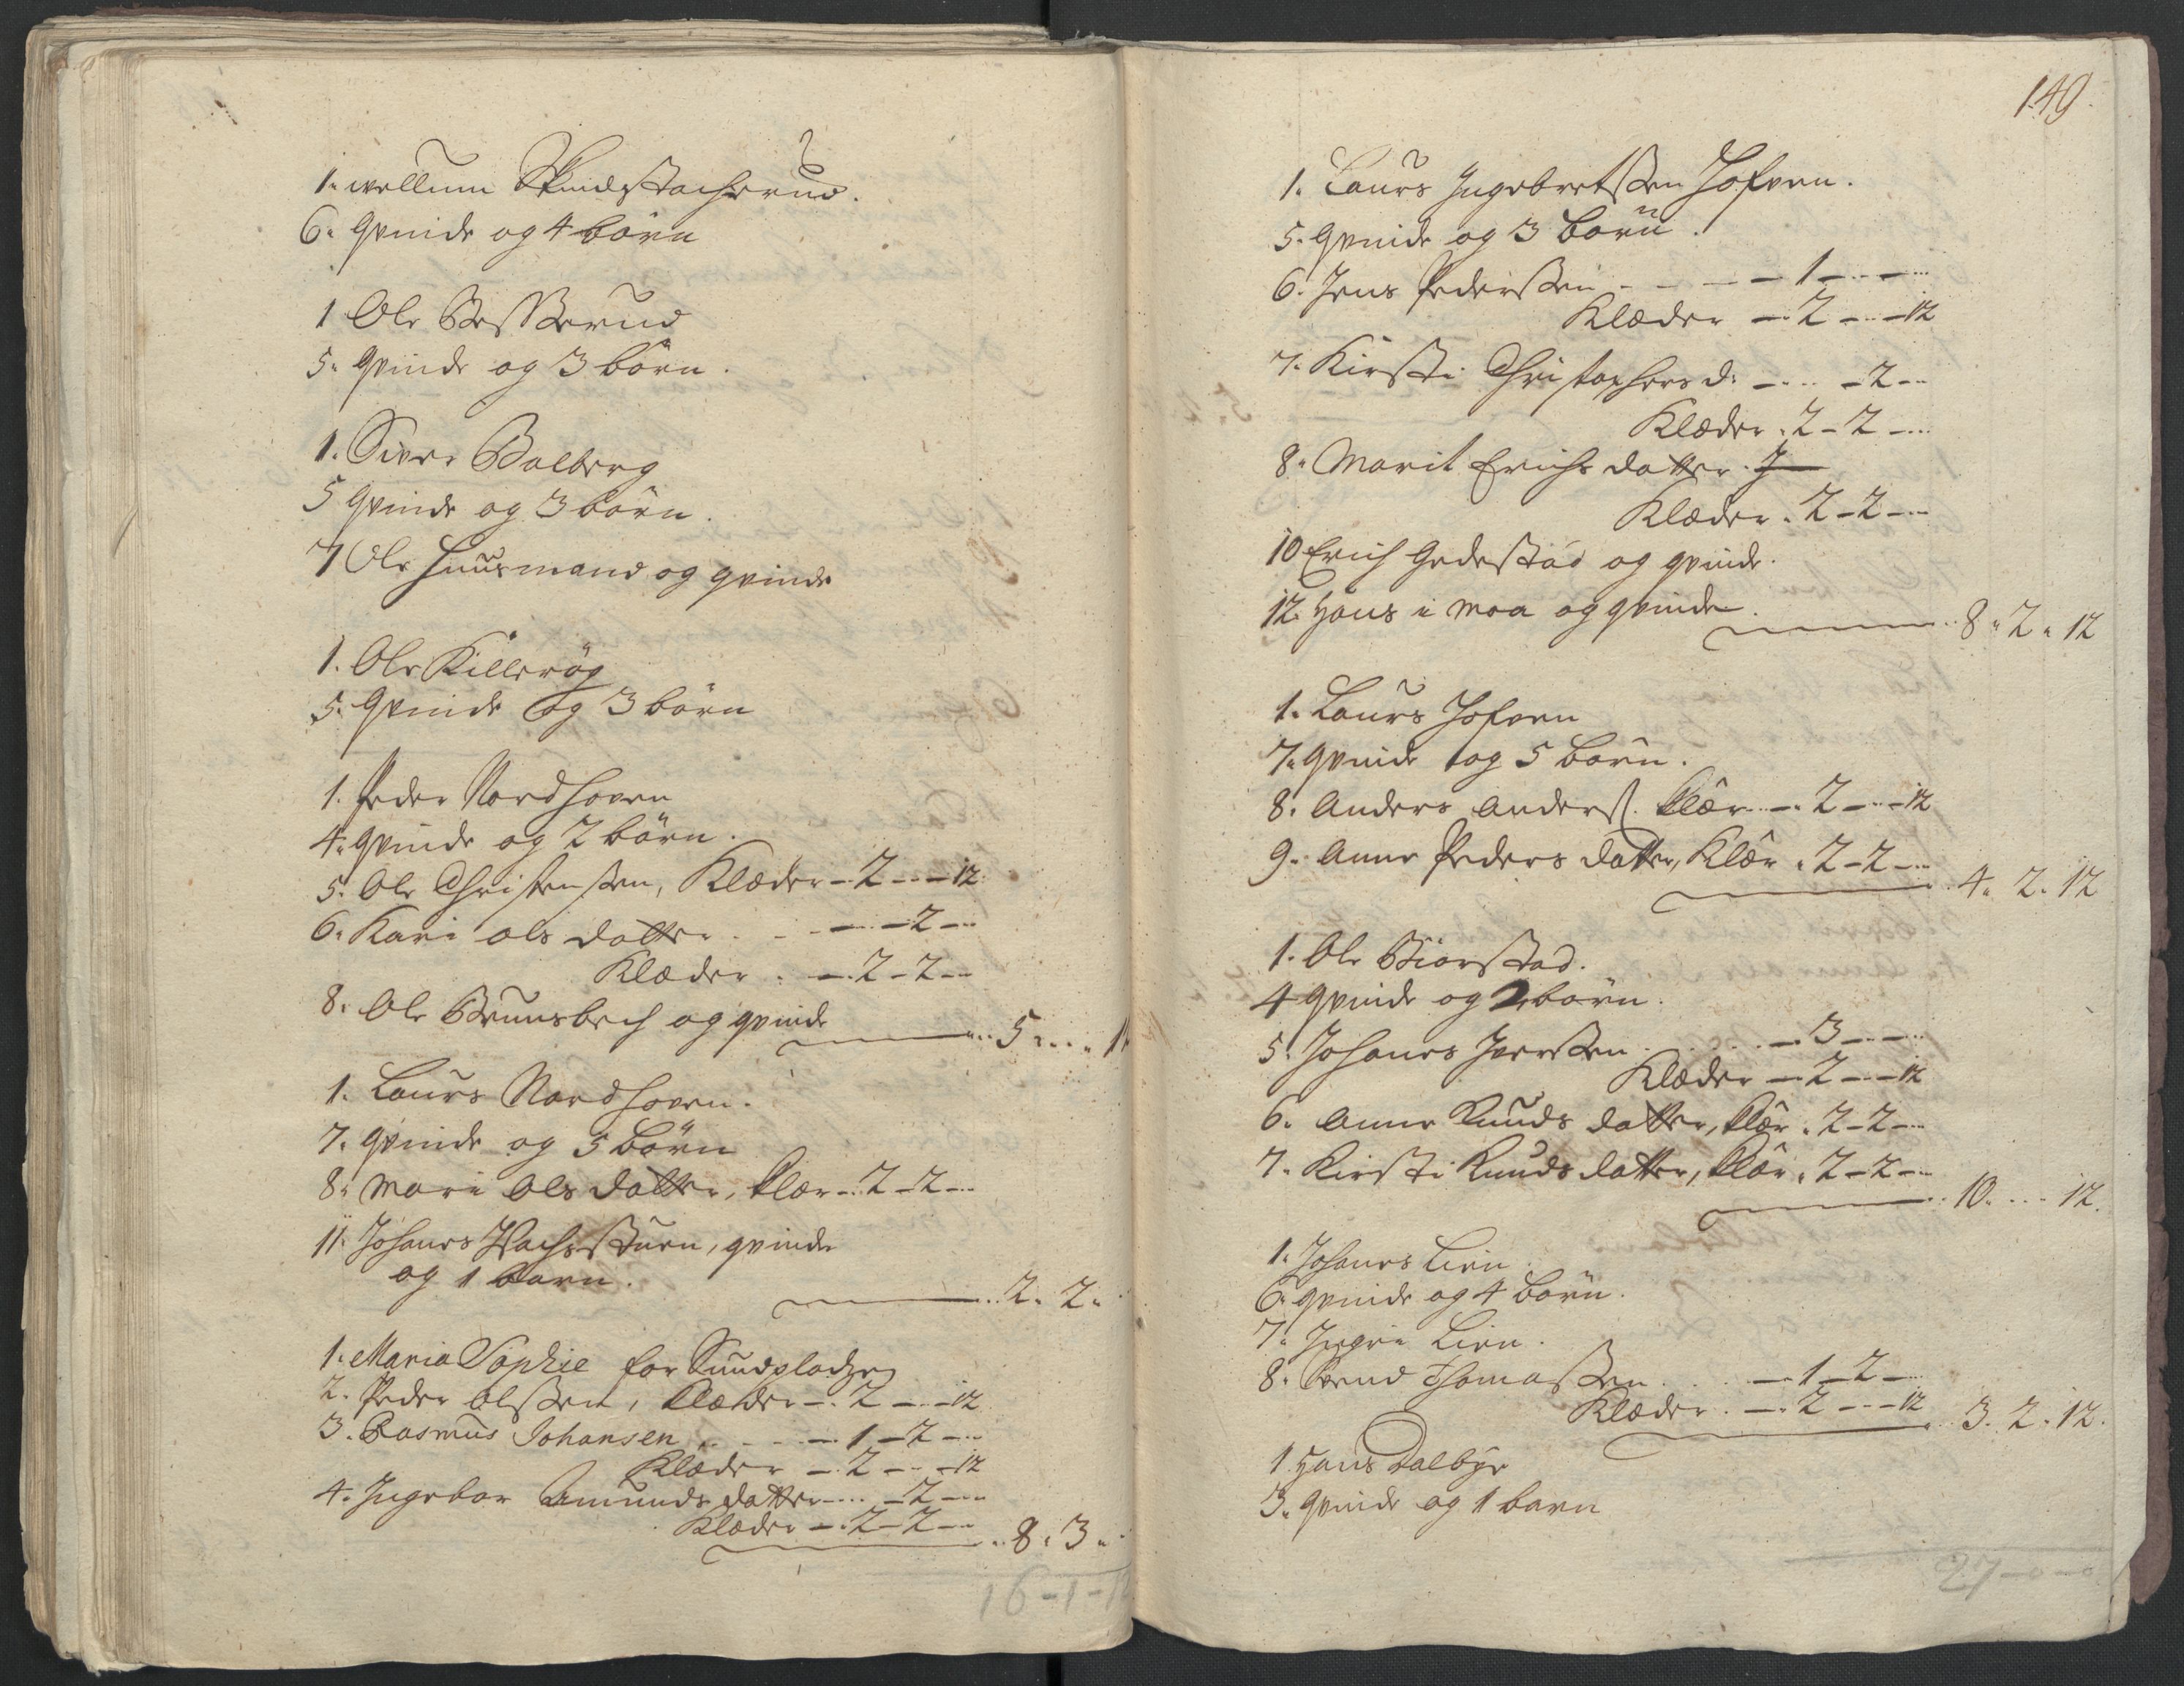 1. wellum Skindstacherud.
6. Qvinde og 4 börn
1 Ole Besserud
5. Qvinde og 3 börn.
1. Siver Balberg
5 Qvinde og 3 börn.
7 Ole huusmand og qvinde
1. Ole Killerög
5. Qvinde og 3 börn
1. Peder Nordhoven
4. qvinde og 2 börn.
5. Ole Christenssen, Klæder - 2 - - 12
6. Kari ols datter - - - 2 -
Klæder . - 2 - 2 -
8. Ole Bruunsbech og qvinde
5 . . . 1
1. Laurs Nordhoven.
7. qvinde og 5 Börn
8. Mari Ols datter, klær - 2 - 2 -
11. Johanes qvinde
og 1 barn.
2. 2.
1. Maria Sophie for Sundpladzen
2. Peder Olssen, klæder - 2 - - 12
3. Rasmus Johansen . . - - 1 - 2 -
Klæder - 2 - - 12
4. Ingebor Amunds datter - - 2 -
Klæder - 2 - 2 -
8. 3.
16 - 1 - 12
149.
1. Laurs Ingebretssen Hofven.
5. Qvinde og 3 börn.
6. Jens Pederssen - - - - 1 - -
Klæder - 2 - - 12
7. Kirsti Christophers d. - - - 2 -
Klæder . 2 - 2 -
8. Marit Erichs datter.
Klæder . 2 - 2 -
10 Erich Gedestad og qvinde.
12. Hans i moa og qvinde.
8. 2. 12
1. Laurs Hofven
7. qvinde og 5 börn.
8. Anders anders. klær - 2 - - 12
9. Anne Peders datter, Klær . 2 - 2 -
4. 2. 12
1. Ole Biorstad.
4 qvinde og 2 börn.
5. Johanes Iverssen . . . - 3 - -
Klæder - 2 - - 12
6. Anne Knuds datter, klær . 2 - 2 -
7. Kirsti Knuds datter, klær . 2 - 2 -
10. - - 12.
1. Johanes Lien.
6. qvinde og 4 börn.
7. Ingri Lien.
8. Svend Thomassen . . - 1 - 2 -
Klæder . - 2 - - 12
3. 2. 12.
1 Hans Dalbye
3. qvinde og 1 barn
27 - 0 - 0